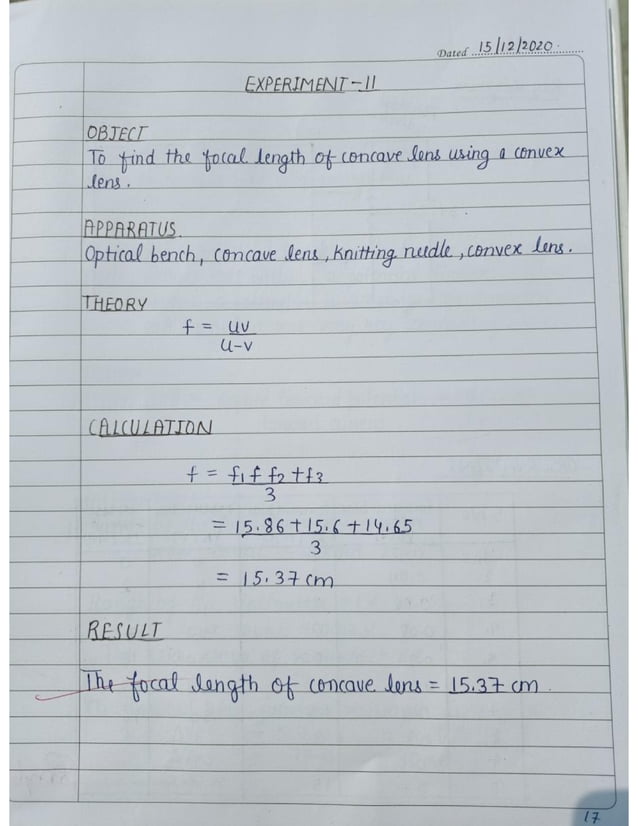 Dated 15/12/2020
EXPERIMENT-11
OBJECT
To find the focal length of concave lens using a convex
lens.
APPARATUS.
Optical bench, concave lens, Knitting needle, convex lens.
THEORY
f = uv
u-v
CALCULATION
f = f1 f f2 + f3
3
= 15.86 + 15.6 + 14.65
3
= 15.37 cm
RESULT
The focal length of concave lens = 15.37 cm.
17